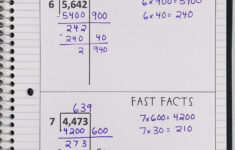 6 5,642 6×900=5400
-5400 900 6×40=240
242
-240 40
2 940
639 FAST FACTS
7 4,473 7×600=4200
4200 600 7×30=210
273